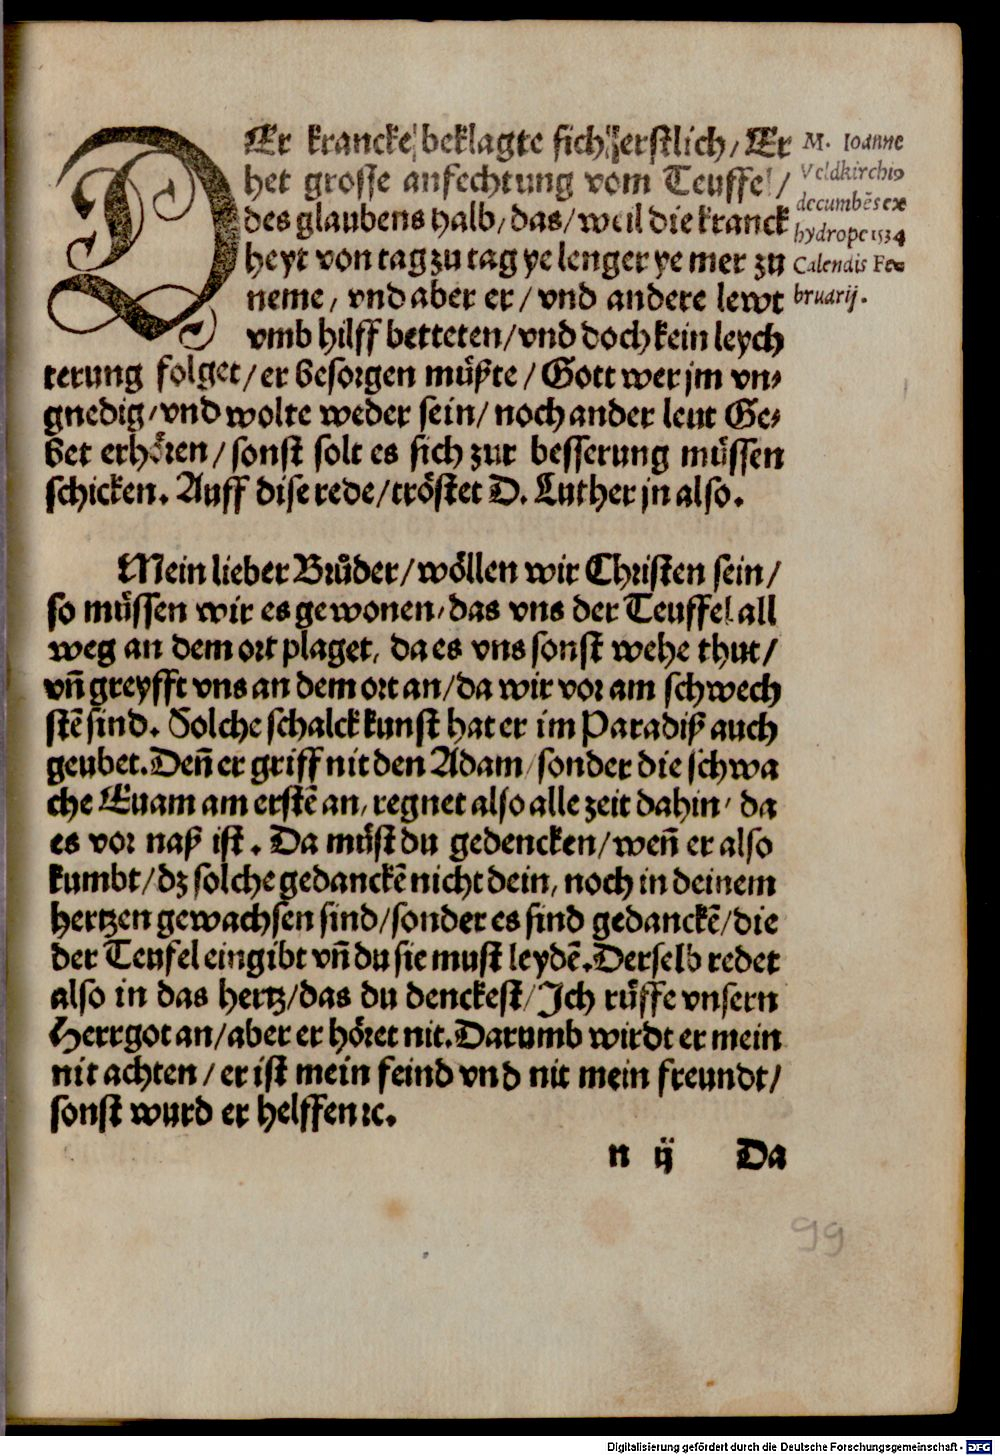 DEr krancke beklagte sich erstlich / Er
het grosse anfechtung vom Teuffel /
des glaubens halb / das / weil die kranck
heyt von tag zu tag ye lenger ye mer zu
neme / vnd aber er / vnd andere lewt
vmb hilff betteten / vnd doch kein leych
terung folget / er besorgen müßte / Gott wer jm vn⸗
gnedig / vnd wolte weder sein / noch ander leut Ge⸗
bet erhören / sonst solt es sich zur besserung müssen
schicken. Auff dise rede / tröstet D. Luther jn also.
M. Ioanne
Veldkirchio
decumbēs ex
hydrope 1534
Calendis Fe⸗
bruarij.
Mein lieber Brůder / wöllen wir Christen sein /
so müssen wir es gewonen / das vns der Teuffel all
weg an dem ort plaget, da es vns sonst wehe thut /
vñ greyfft vns an dem ort an / da wir vor am schwech
stē sind. Solche schalckkunst hat er im Paradiß auch
geubet. Deñ er griff nit den Adam / sonder die schwa
che Euam am erstē an, regnet also alle zeit dahin / da
es vor naß ist. Da müst du gedencken / weñ er also
kumbt / dz solche gedanckē nicht dein, noch in deinem
hertzen gewachsen sind / sonder es sind gedanckē / die
der Teufel eingibt vñ du sie must leydē. Derselb redet
also in das hertz / das du denckest / Ich rüffe vnsern
Herrgot an / aber er höret nit. Darumb wirdt er mein
nit achten / er ist mein feind vnd nit mein freundt /
sonst wurd er helffen ꝛc.
n ij Da
99
Digitalisierung gefördert durch die Deutsche Forschungsgemeinschaft - DFG